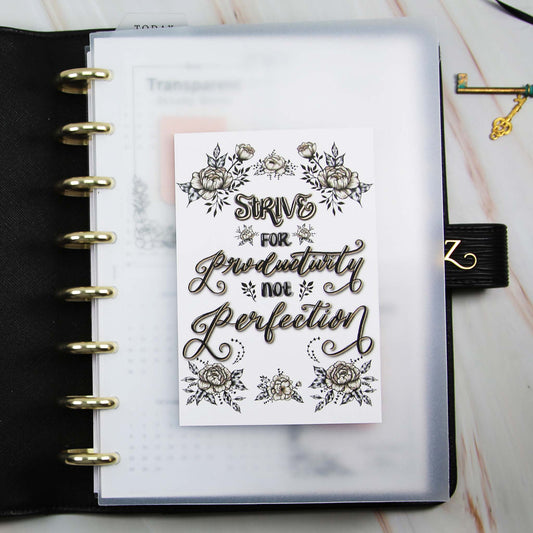 TODAY
Transparent
STRIVE
FOR
Productivity
not
Perfection
Z